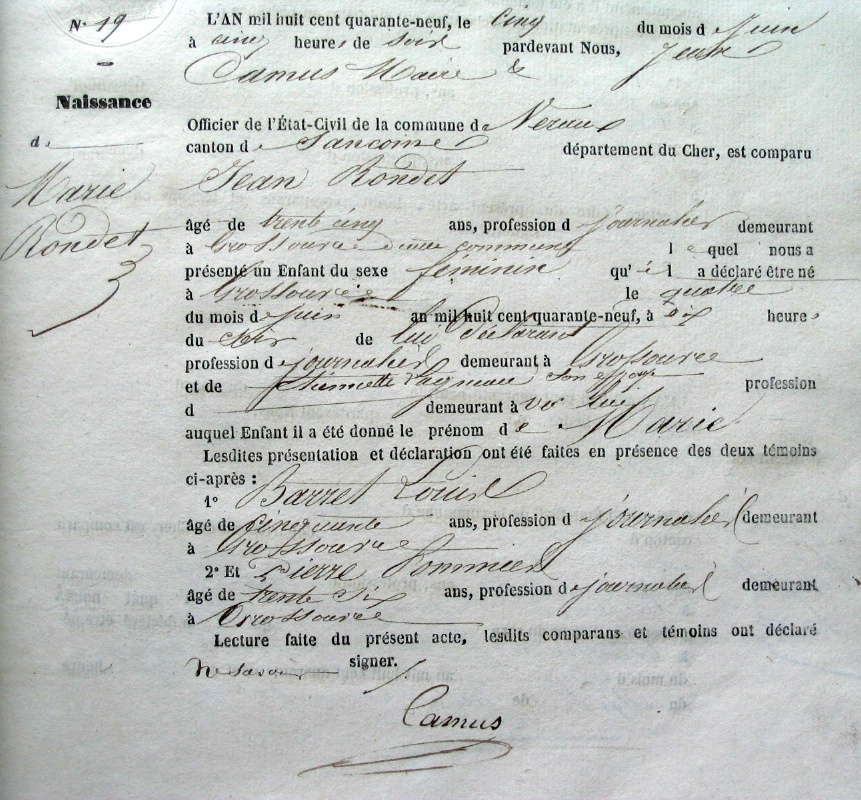 N.° 19
Naissance
d
Marie
Rondet
L'AN mil huit cent quarante-neuf, le cinq du mois d Juin
à cinq heures de soir pardevant Nous, Jean
Camus Maire &
Officier de l'État-Civil de la commune de Neraux
canton de Sancoins département du Cher, est comparu
Jean Rondet
âgé de trente cinq ans, profession d journalier demeurant
à Grossource commune l e quel nous a
présenté un Enfant du sexe féminin qu' i l a déclaré être né
à Grossource le quatre
du mois de Juin an mil huit cent quarante-neuf, à dix heures
du de lui Déclarant
profession de journalier demeurant à Grossource
et de son épouse profession
d demeurant à lui
auquel Enfant il a été donné le prénom de Marie
Lesdites présentation et déclaration ont été faites en présence des deux témoins
ci-après :
1° Barret Louis
âgé de cinquante ans, profession d journalier demeurant
à Grossource
2° Et Pierre Pommier
âgé de trente six ans, profession de journalier demeurant
à Grossource
Lecture faite du présent acte, lesdits comparans et témoins ont déclaré
ne savoir signer.
Camus